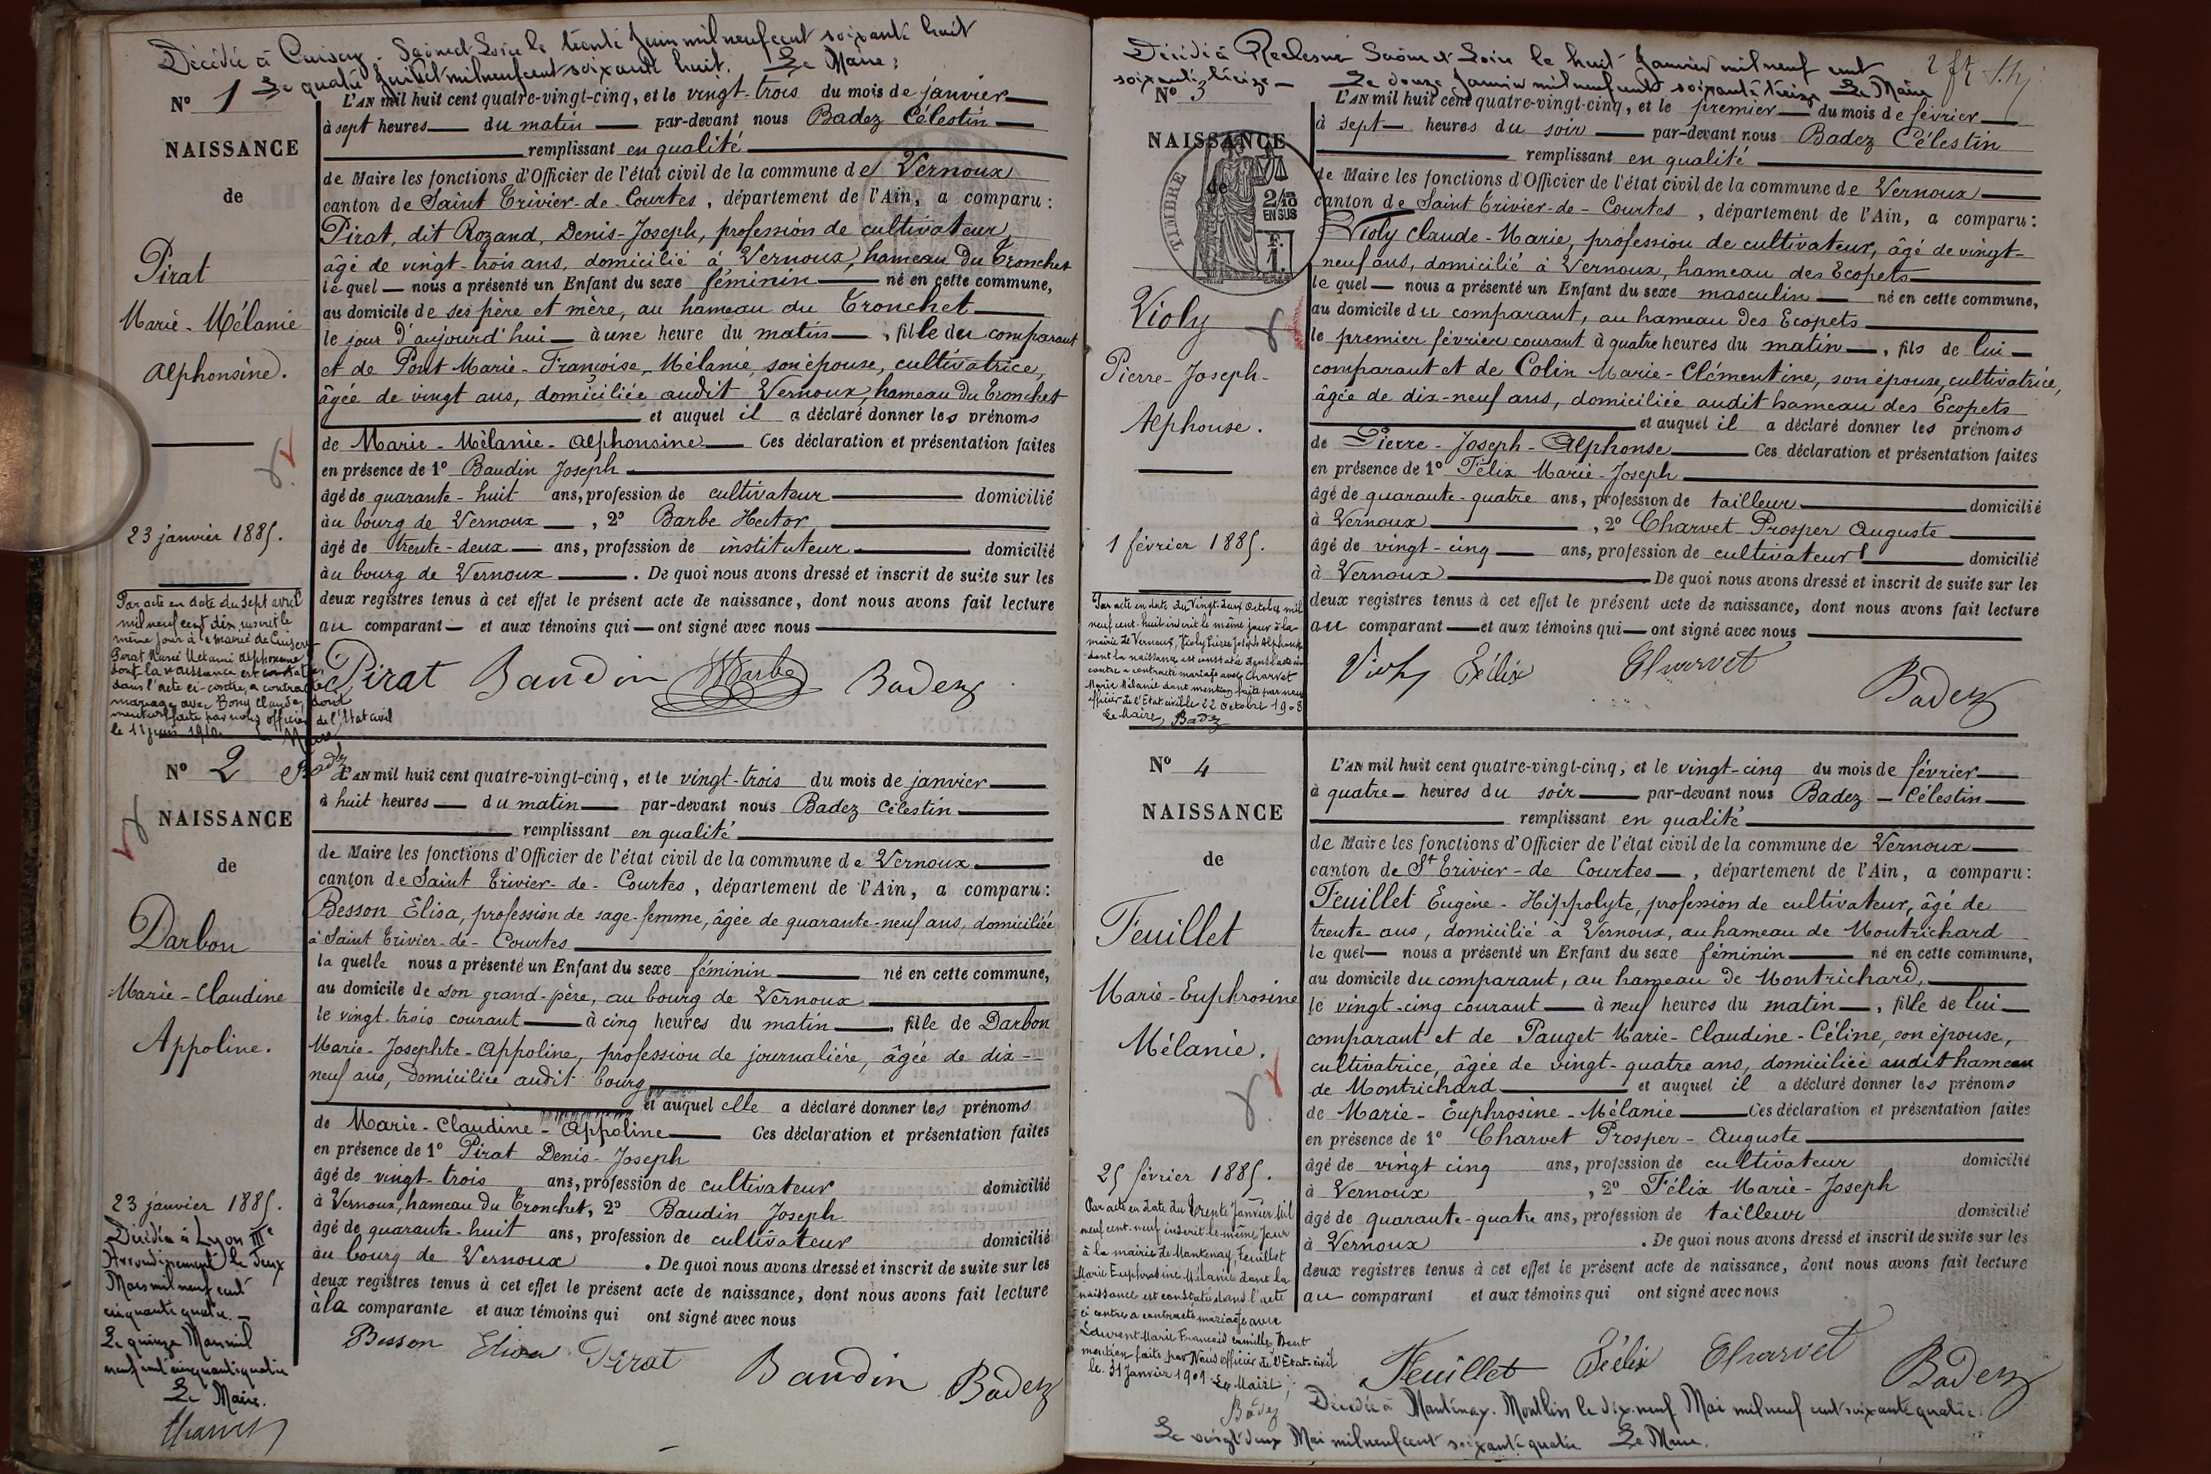 Décédée à Cuiseaux Saône et Loire le trente Juin mil neuf cent soixante huit
Le quatre Juillet mil neuf cent soixante huit. Le Maire :
N° 1
NAISSANCE
de
Pirat
Marie-Mélanie
Alphonsine.
23 janvier 1885.
Par acte en date du sept avril
mil neuf cent dix, inscrit le
même jour à la mairie de
Pirat Marie Mélanie Alphonsine
dont la naissance est constatée
dans l'acte ci-contre, a contracté
mariage avec Bony Claude, dont
mention faite par nous officier de l'Etat civil
le 11 juin 1910. Le Maire
Badez
L'AN mil huit cent quatre-vingt-cinq, et le vingt-trois du mois de janvier
à sept heures du matin par-devant nous Badez Célestin
remplissant en qualité
de Maire les fonctions d'Officier de l'état civil de la commune de Vernoux
canton de Saint Trivier-de-Courtes, département de l'Ain, a comparu :
Pirat, dit Rozand, Denis-Joseph, profession de cultivateur,
âgé de vingt-trois ans, domicilié à Vernoux, hameau du Tronchet
lequel nous a présenté un Enfant du sexe féminin né en cette commune,
au domicile de ses père et mère, au hameau du Tronchet
le jour d'aujourd'hui à une heure du matin, fille du comparant
et de Pont Marie-Françoise-Mélanie, son épouse, cultivatrice,
âgée de vingt ans, domiciliée audit Vernoux, hameau du Tronchet
et auquel il a déclaré donner les prénoms
de Marie-Mélanie-Alphonsine Ces déclaration et présentation faites
en présence de 1° Baudin Joseph
âgé de quarante-huit ans, profession de cultivateur domicilié
au bourg de Vernoux, 2° Barbe Hector,
âgé de trente-deux ans, profession de instituteur domicilié
au bourg de Vernoux. De quoi nous avons dressé et inscrit de suite sur les
deux registres tenus à cet effet le présent acte de naissance, dont nous avons fait lecture
au comparant et aux témoins qui ont signé avec nous
Pirat Baudin HBarbe Badez
N° 2
NAISSANCE
de
Darbon
Marie-Claudine
Appoline.
23 janvier 1885.
Décédée à Lyon IIIe
Arrondissement le deux
Mars mil neuf cent
cinquante quatre.
Le quinze Mars mil
neuf cent cinquante quatre
Le Maire.
L'AN mil huit cent quatre-vingt-cinq, et le vingt-trois du mois de janvier
à huit heures du matin par-devant nous Badez Célestin
remplissant en qualité
de Maire les fonctions d'Officier de l'état civil de la commune de Vernoux
canton de Saint Trivier-de-Courtes, département de l'Ain, a comparu :
Besson Elisa, profession de sage-femme, âgée de quarante-neuf ans, domiciliée
à Saint Trivier-de-Courtes
laquelle nous a présenté un Enfant du sexe féminin né en cette commune,
au domicile de son grand-père, au bourg de Vernoux
le vingt-trois courant à cinq heures du matin, fille de Darbon
Marie-Josephte-Appoline, profession de journalière, âgée de dix-
neuf ans, domiciliée audit bourg
et auquel elle a déclaré donner les prénoms
de Marie-Claudine-Appoline Ces déclaration et présentation faites
en présence de 1° Pirat Denis-Joseph
âgé de vingt-trois ans, profession de cultivateur domicilié
à Vernoux, hameau du Tronchet, 2° Baudin Joseph
âgé de quarante-huit ans, profession de cultivateur domicilié
au bourg de Vernoux. De quoi nous avons dressé et inscrit de suite sur les
deux registres tenus à cet effet le présent acte de naissance, dont nous avons fait lecture
à la comparante et aux témoins qui ont signé avec nous
Besson Elisa Pirat Baudin Badez
Décédé à Reclesne Saône et Loire le huit Janvier mil neuf cent
soixante treize Le douze Janvier mil neuf cent soixante treize Le Maire
N° 3
NAISSANCE
de
TIMBRE
2/10
EN SUS
F.
1.
Violy
Pierre-Joseph-
Alphonse.
1 février 1885.
Par acte en date du Vingt deux Octobre mil
neuf cent huit inscrit le même jour à la
mairie de Vernoux, Violy Pierre Joseph Alphonse
dont la naissance est constatée dans l'acte ci-
contre a contracté mariage avec Charvet
Marie Mélanie dont mention faite par nous
officier de l'Etat civil le 22 octobre 1908
Le Maire, Badez
L'AN mil huit cent quatre-vingt-cinq, et le premier du mois de février
à sept heures du soir par-devant nous Badez Célestin
remplissant en qualité
de Maire les fonctions d'Officier de l'état civil de la commune de Vernoux
canton de Saint Trivier-de-Courtes, département de l'Ain, a comparu :
Violy Claude-Marie, profession de cultivateur, âgé de vingt-
neuf ans, domicilié à Vernoux, hameau des Ecopets
lequel nous a présenté un Enfant du sexe masculin né en cette commune,
au domicile du comparant, au hameau des Ecopets
le premier février courant à quatre heures du matin, fils de lui
comparant et de Colin Marie-Clémentine, son épouse, cultivatrice,
âgée de dix-neuf ans, domiciliée audit hameau des Ecopets
et auquel il a déclaré donner les prénoms
de Pierre-Joseph-Alphonse Ces déclaration et présentation faites
en présence de 1° Félix Marie-Joseph
âgé de quarante-quatre ans, profession de tailleur domicilié
à Vernoux, 2° Charvet Prosper Auguste
âgé de vingt-cinq ans, profession de cultivateur domicilié
à Vernoux De quoi nous avons dressé et inscrit de suite sur les
deux registres tenus à cet effet le présent acte de naissance, dont nous avons fait lecture
au comparant et aux témoins qui ont signé avec nous
Violy Félix Charvet Badez
N° 4
NAISSANCE
de
Feuillet
Marie-Euphrosine
Mélanie.
25 février 1885.
Par acte en date du trente Janvier Mil
neuf cent neuf inscrit le même jour
à la mairie de Mantenay, Feuillet
Marie Euphrosine Mélanie dont la
naissance est constatée dans l'acte
ci contre a contracté mariage avec
Laurent Marie François Camille, dont
mention faite par Nous officier de l'Etat civil
le 31 Janvier 1909 Le Maire,
Badez
L'AN mil huit cent quatre-vingt-cinq, et le vingt-cinq du mois de février
à quatre heures du soir par-devant nous Badez-Célestin
remplissant en qualité
de Maire les fonctions d'Officier de l'état civil de la commune de Vernoux
canton de St Trivier-de Courtes, département de l'Ain, a comparu :
Feuillet Eugène-Hippolyte, profession de cultivateur, âgé de
trente ans, domicilié à Vernoux, au hameau de Montrichard
lequel nous a présenté un Enfant du sexe féminin né en cette commune,
au domicile du comparant, au hameau de Montrichard,
le vingt-cinq courant à neuf heures du matin, fille de lui
comparant et de Pauget Marie-Claudine-Céline, son épouse,
cultivatrice, âgée de vingt-quatre ans, domiciliée audit hameau
de Montrichard et auquel il a déclaré donner les prénoms
de Marie-Euphrosine-Mélanie Ces déclaration et présentation faites
en présence de 1° Charvet Prosper-Auguste
âgé de vingt cinq ans, profession de cultivateur domicilié
à Vernoux, 2° Félix Marie-Joseph
âgé de quarante-quatre ans, profession de tailleur domicilié
à Vernoux. De quoi nous avons dressé et inscrit de suite sur les
deux registres tenus à cet effet le présent acte de naissance, dont nous avons fait lecture
au comparant et aux témoins qui ont signé avec nous
Feuillet Félix Charvet Badez
Décédée à Mantenay-Montlin le dix-neuf Mai mil neuf cent soixante quatre.
Le vingt deux Mai mil neuf cent soixante quatre Le Maire.